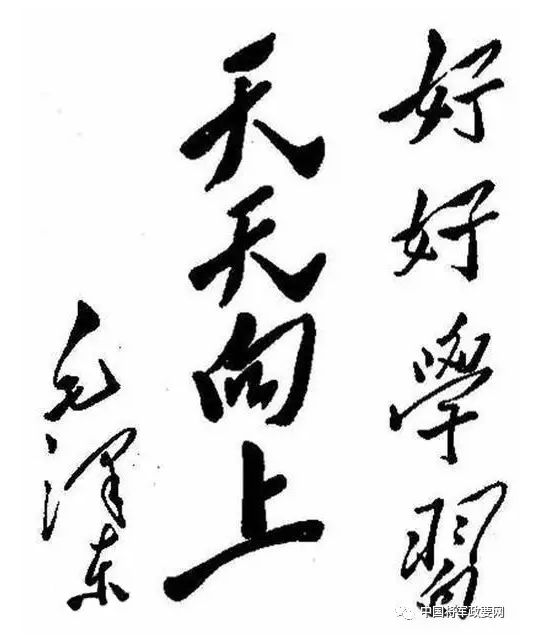 好好學習
天天向上
毛泽东
中国将军政要网